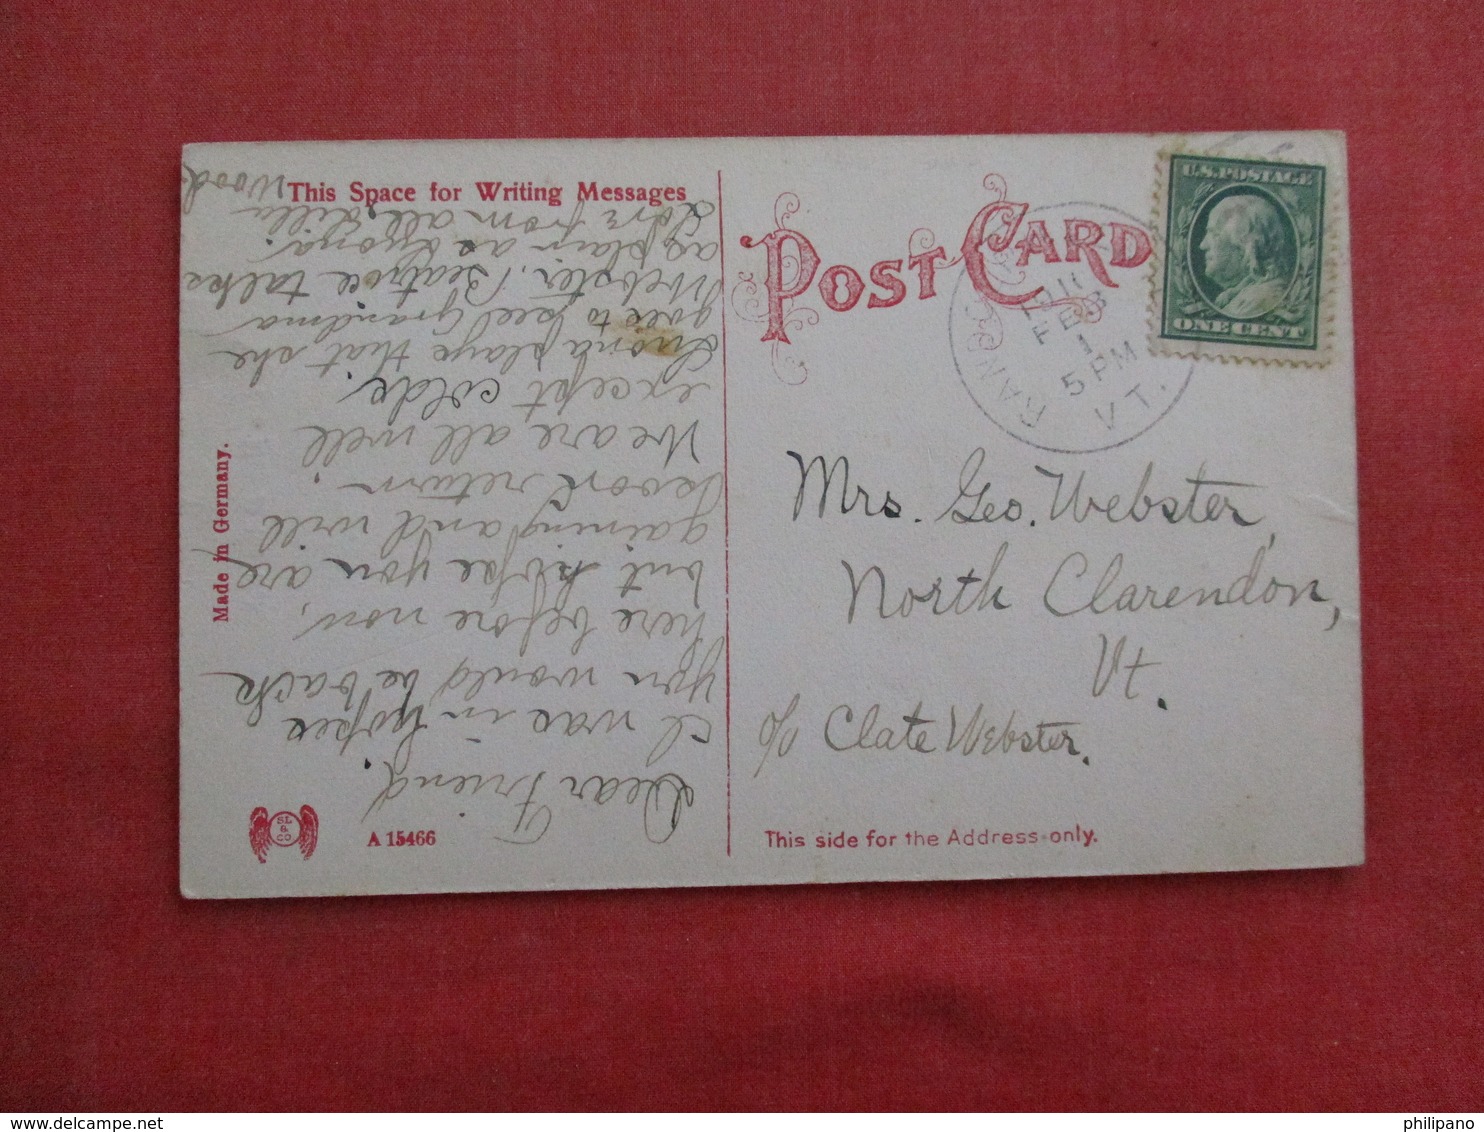 This Space for Writing Messages
POST CARD
U.S. POSTAGE
ONE CENT
FEB
1
5 PM
VT.
Mrs. Geo. Webster,
North Clarendon,
Vt.
c/o Clate Webster.
This side for the Address only.
Made in Germany.
SL
&
CO
A 15466
Dear Friend,
I was in hopes
you would be back
here before now,
but hope you are
gaining and will
soon return.
We are all well
except colds.
plays that she
goes to see Grandma
Webster. Beatrice talks
as plain as
Love from all,
Wood.
delcampe.net
philipano